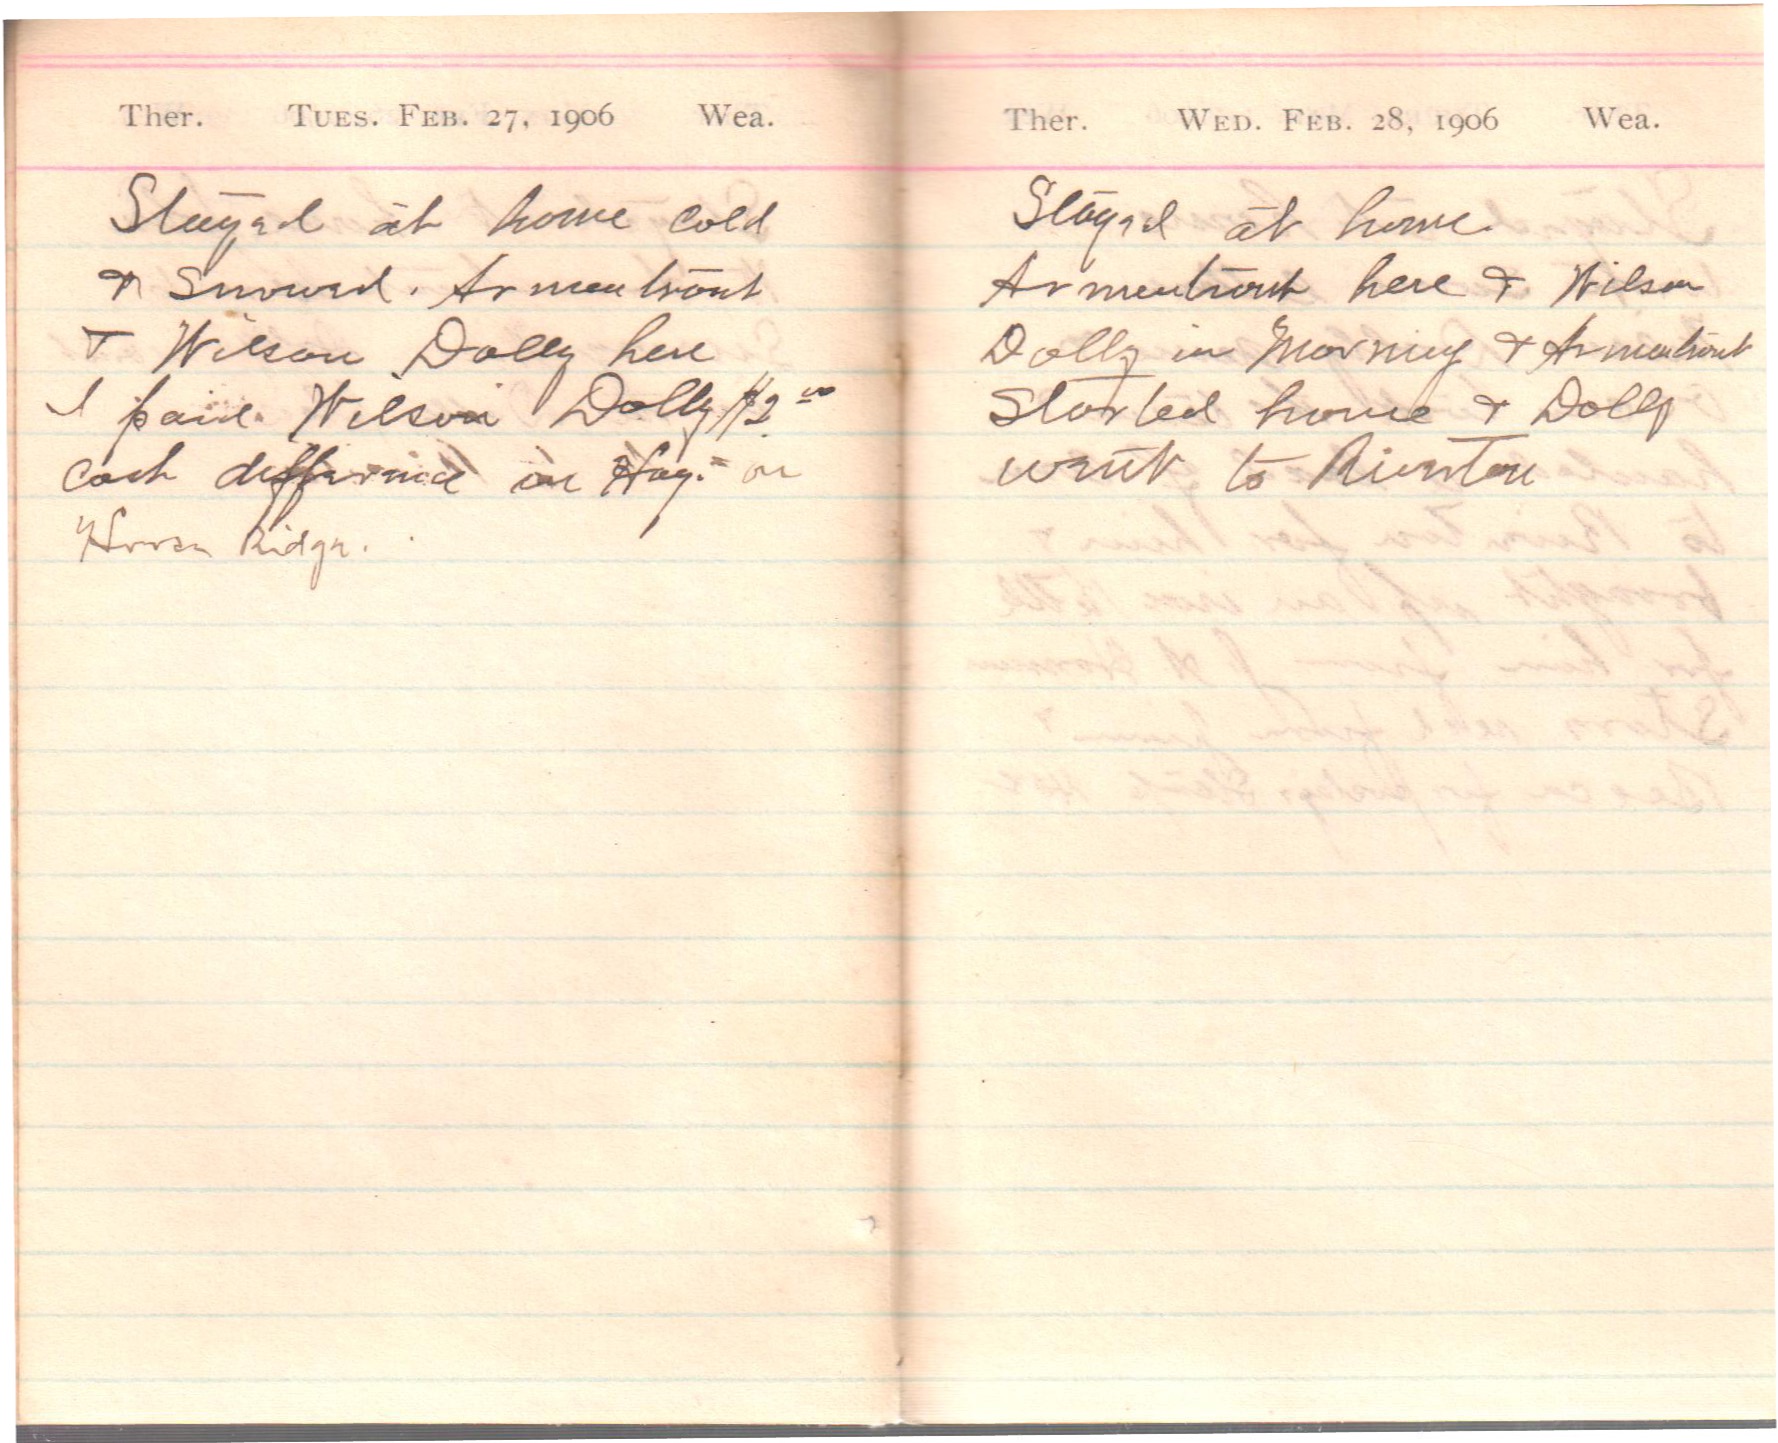 Ther. TUES. FEB. 27, 1906 Wea.
Stayed at home cold
& Snowed. Armentrout
& Wilson Dolly here
I paid Wilson Dolly $2 00
cash difference in Hay. on
Horse Ridge.
Ther. WED. FEB. 28, 1906 Wea.
Stayed at home
Armentrout here & Wilson
Dolly in Morning & Armentrout
Started home & Dolly
went to Riverton